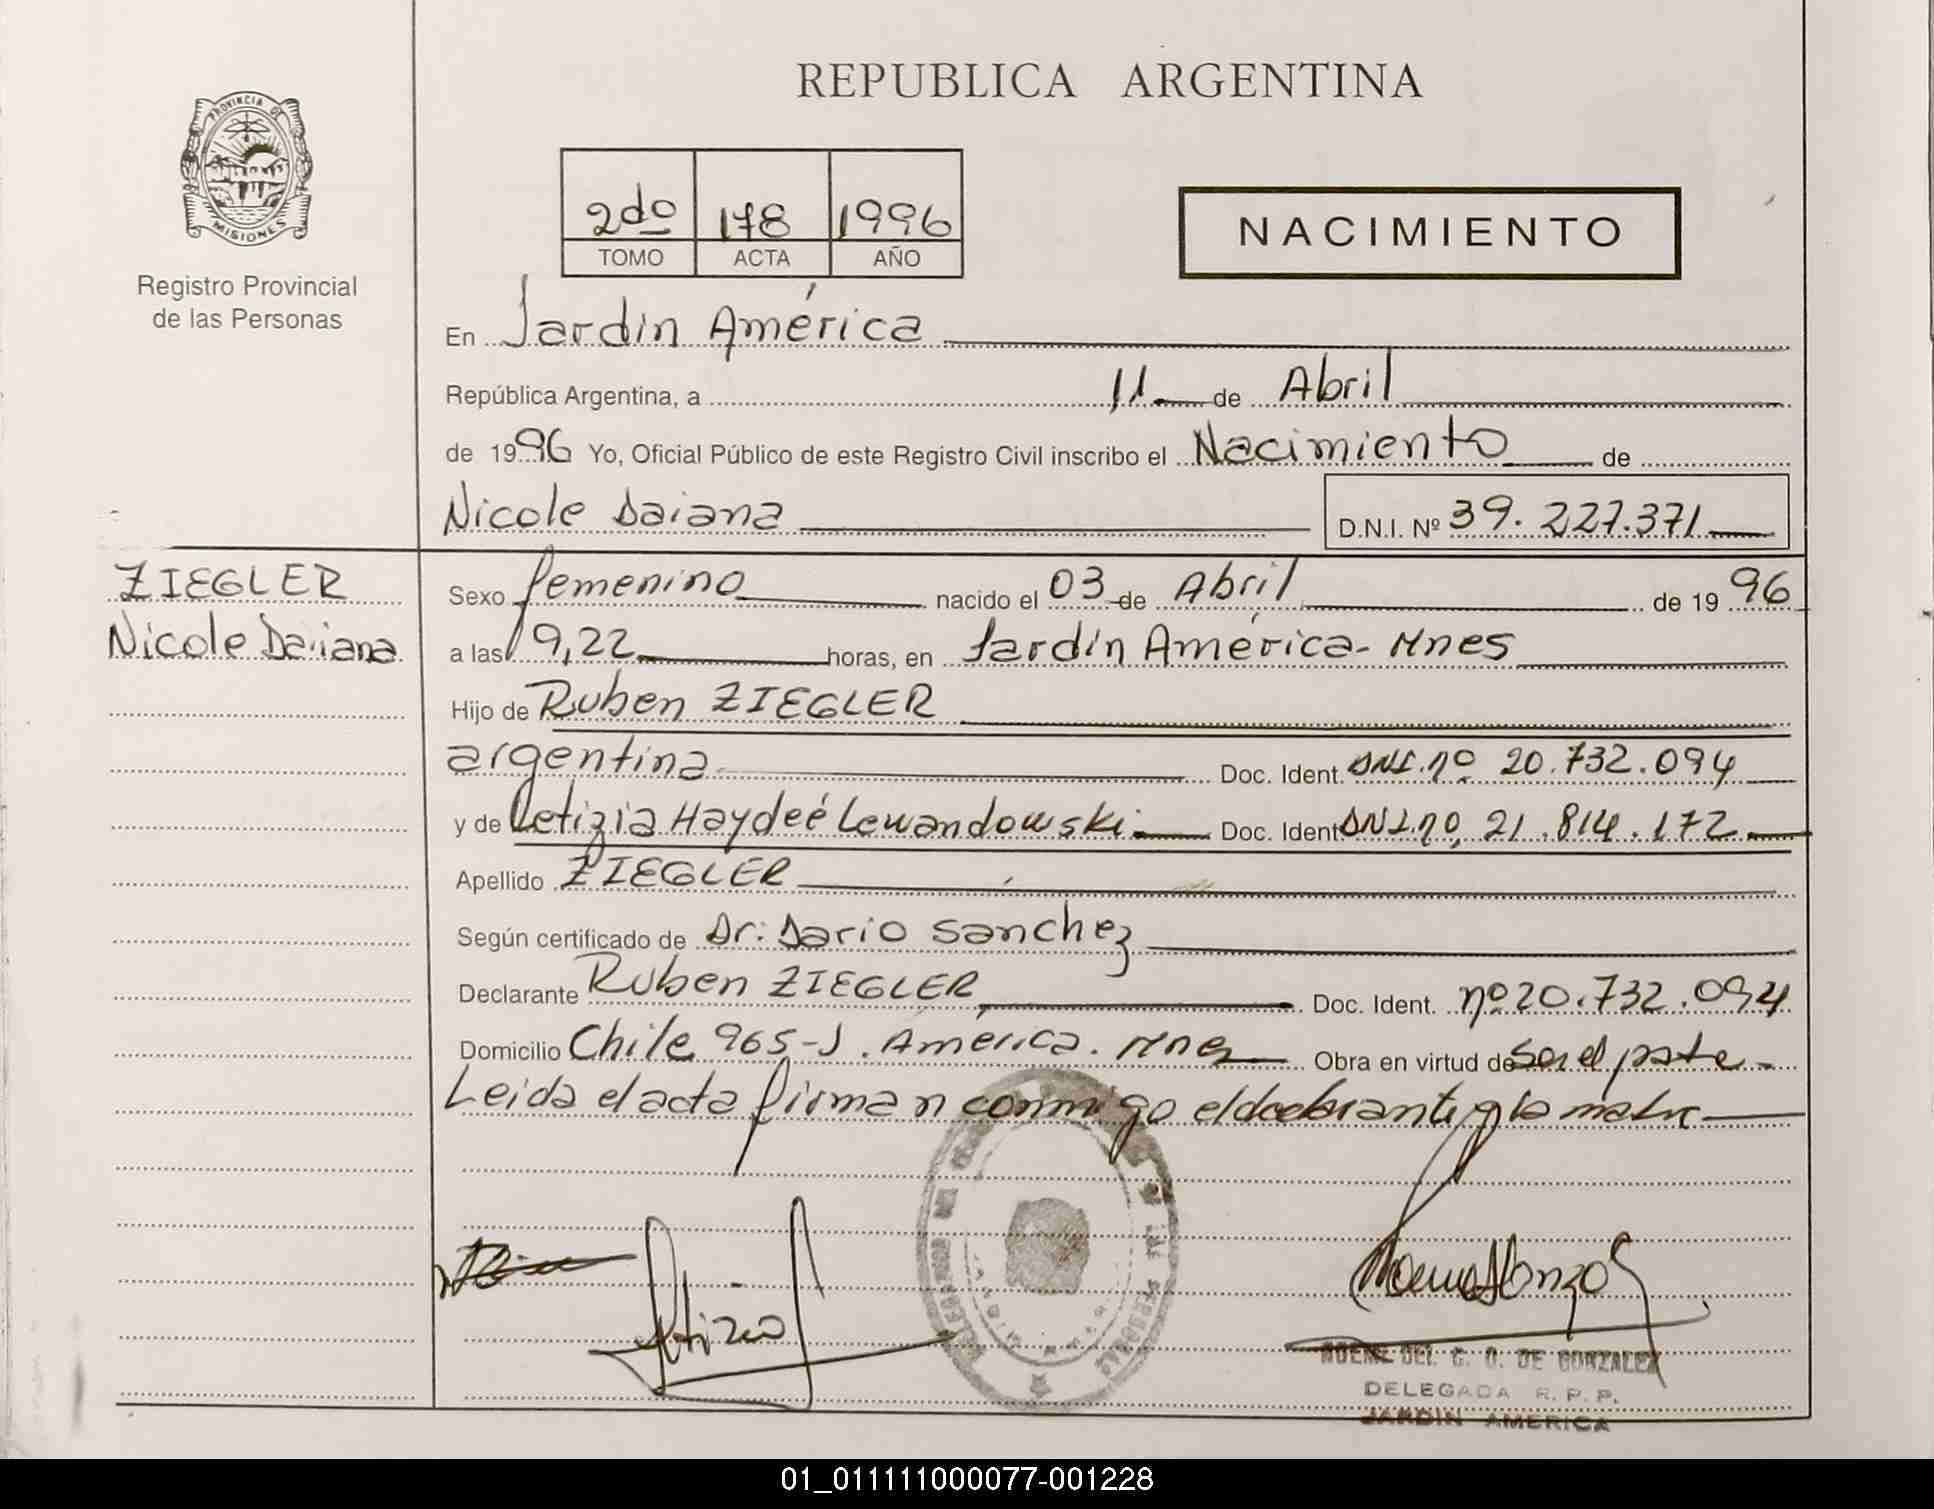 REPUBLICA ARGENTINA
PROVINCIA DE
MISIONES
Registro Provincial
de las Personas
2do 178 1996
TOMO ACTA AÑO
NACIMIENTO
En Jardín América
República Argentina, a 11 de Abril
de 1996 Yo, Oficial Público de este Registro Civil inscribo el Nacimiento de
Nicole Daiana D.N.I. Nº 39.227.371
ZIEGLER
Nicole Daiana
Sexo femenino nacido el 03 de Abril de 1996
a las 19,22 horas, en Jardín América - Mnes
Hijo de Ruben ZIEGLER
argentina Doc. Ident. DNI. nº 20.732.094
y de Letizia Haydeé Lewandowski Doc. Ident DNI. nº 21.814.172
Apellido ZIEGLER
Según certificado de Dr: Dario Sanchez
Declarante Ruben ZIEGLER Doc. Ident. nº 20.732.094
Domicilio Chile 965-J. América. Mnes Obra en virtud de Ser el padre
Leida el acta firman conmigo el declarante y la madre
DE GONZALEZ
DELEGADA R. P. P.
JARDIN AMERICA
01_011111000077-001228